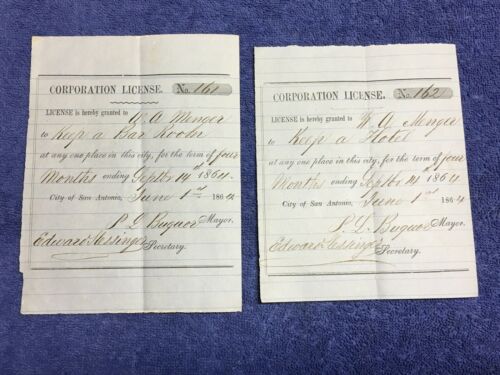 CORPORATION LICENSE. No. 161
LICENSE is hereby granted to W. A Menger
to Keep a Bar Room
at any one place in this city, for the term of four
Months ending Septbr 14th 1864.
City of San Antonio, June 1st 1864
P. L. Buquor Mayor.
Edward Messinger Secretary.
CORPORATION LICENSE. No. 162
LICENSE is hereby granted to W. A. Menger
to Keep a Hotel
at any one place in this city, for the term of four
Months ending Septbr 14 1864
City of San Antonio, June 1st 1864
P. L. Buquor Mayor.
Edward Messinger Secretary.